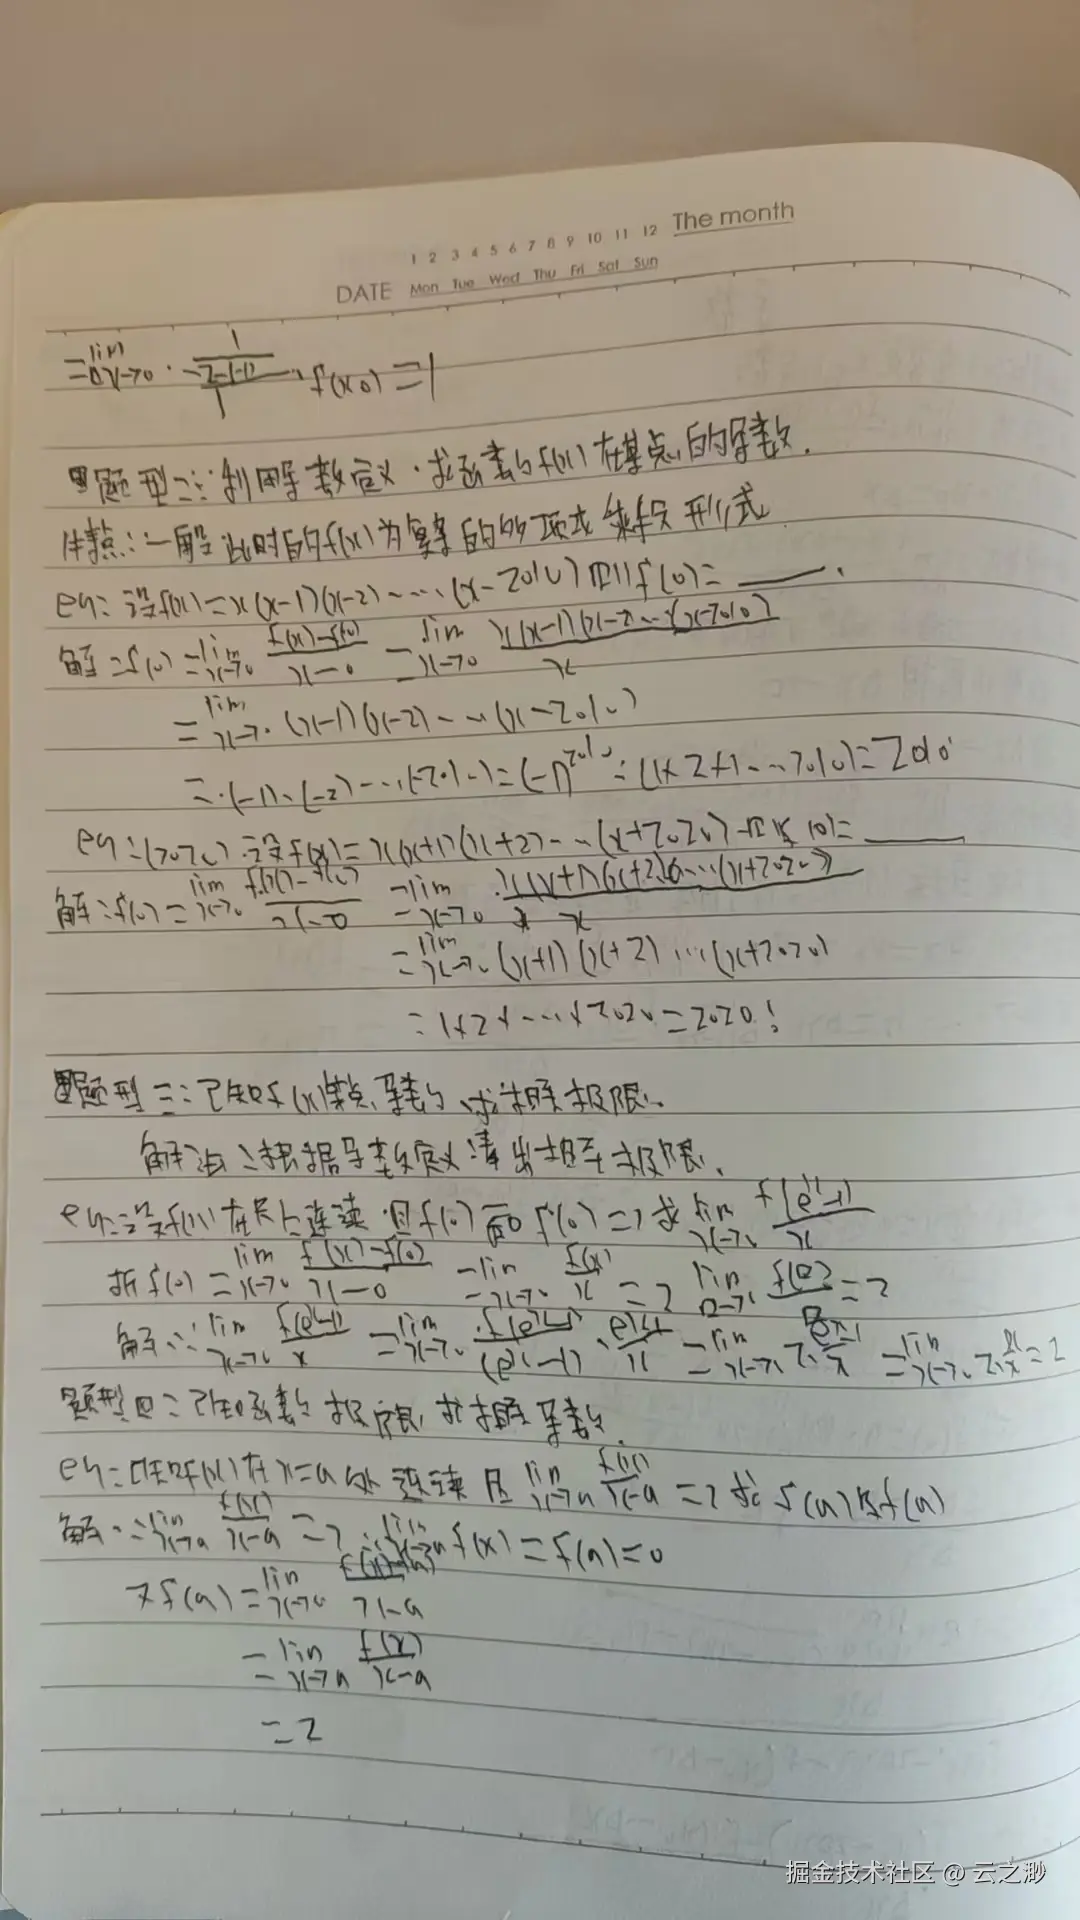 The month
1 2 3 4 5 6 7 8 9 10 11 12
DATE Mon Tue Wed Thu Fri Sat Sun
=lim Δx→0 · f(x0) =1
题型二:利用导数定义·求函数f(x)在某点的导数.
特点:一般此时的f(x)为复杂的多项式乘积形式
eg:设f(x)=x(x-1)(x-2)……(x-2010)则f'(0)=____.
解:f'(0)=lim x→0 (f(x)-f(0))/(x-0) =lim x→0 x(x-1)(x-2)…(x-2010)/x
=lim x→0 (x-1)(x-2)……(x-2010)
=(-1)·(-2)……(-2010)=(-1)^2010 · (1×2×……2010)=2010!
eg:(2020)·设f(x)=x(x+1)(x+2)……(x+2020)则f'(0)=____
解:f'(0)=lim x→0 (f(x)-f(0))/(x-0) =lim x→0 x(x+1)(x+2)…(x+2020)/x
=lim x→0 (x+1)(x+2)…(x+2020)
=1×2×…×2020=2020!
题型三:已知f(x)某点导数,求相关极限.
解法:根据导数定义凑出相关极限.
eg:设f(x)在R上连续 且f(0) f'(0)=2求 lim x→0 f(e^x-1)/x
析f'(0)=lim x→0 (f(x)-f(0))/(x-0) =lim x→0 f(x)/x =2 lim □→0 f(□)/□=2
解:lim x→0 f(e^x-1)/x =lim x→0 f(e^x-1)/(e^x-1)·(e^x-1)/x =lim x→0 2·(e^x-1)/x =lim x→0 2·x/x=2
题型四:已知函数极限,求相关导数.
eg:已知f(x)在x=a处连续且 lim x→a f(x)/(x-a) =2求f(a)及f'(a)
解:∵lim x→a f(x)/(x-a) =2 ∴lim x→a f(x)=f(a)=0
又f'(a)=lim x→a (f(x)-f(a))/(x-a)
=lim x→a f(x)/(x-a)
=2
掘金技术社区 @ 云之渺